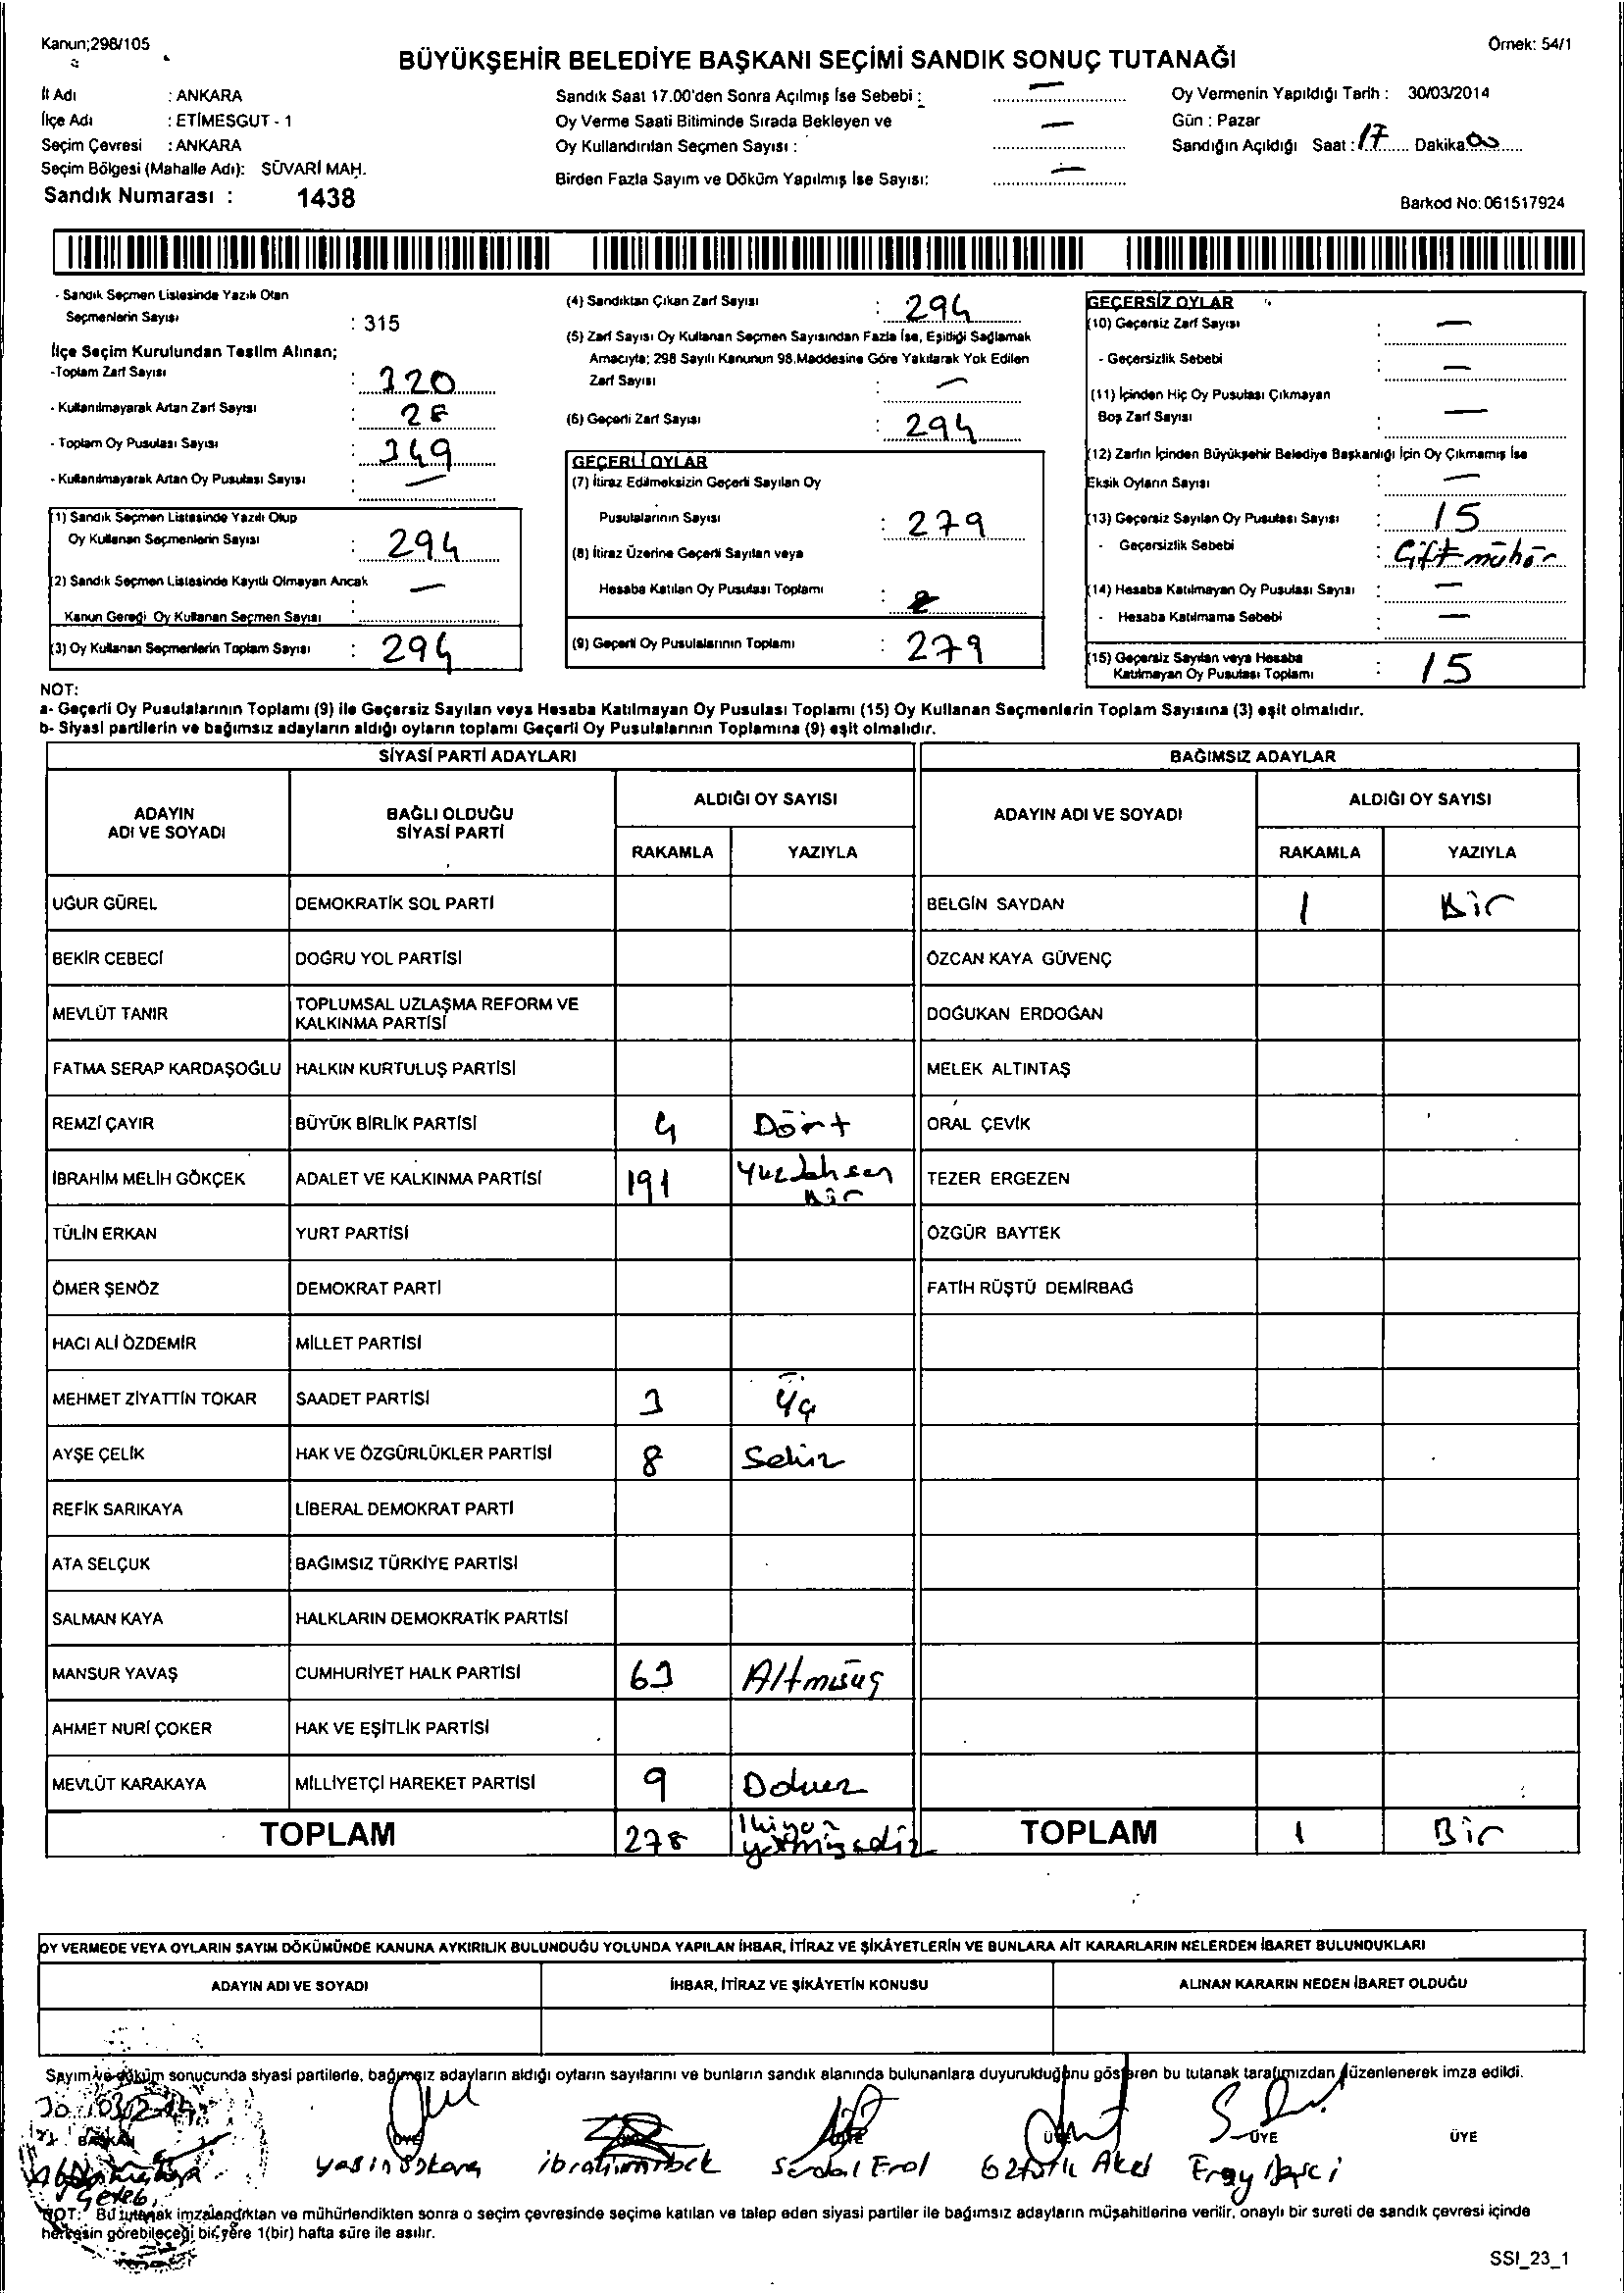 Kanun;298/105
Örnek: 54/1
BÜYÜKŞEHİR BELEDİYE BAŞKANI SEÇİMİ SANDIK SONUÇ TUTANAĞI
İl Adı : ANKARA
İlçe Adı : ETİMESGUT - 1
Seçim Çevresi : ANKARA
Seçim Bölgesi (Mahalle Adı): SÜVARİ MAH.
Sandık Numarası : 1438
Sandık Saat 17.00'den Sonra Açılmış İse Sebebi : —
Oy Verme Saati Bitiminde Sırada Bekleyen ve
Oy Kullandırılan Seçmen Sayısı : —
Birden Fazla Sayım ve Döküm Yapılmış İse Sayısı: —
Oy Vermenin Yapıldığı Tarih : 30/03/2014
Gün : Pazar
Sandığın Açıldığı Saat : 17 Dakika: 00
Barkod No: 061517924
- Sandık Seçmen Listesinde Yazılı Olan
Seçmenlerin Sayısı : 315
İlçe Seçim Kurulundan Teslim Alınan;
-Toplam Zarf Sayısı : 320
- Kullanılmayarak Artan Zarf Sayısı : 28
- Toplam Oy Pusulası Sayısı : 349
- Kullanılmayarak Artan Oy Pusulası Sayısı : —
(1) Sandık Seçmen Listesinde Yazılı Olup
Oy Kullanan Seçmenlerin Sayısı : 294
(2) Sandık Seçmen Listesinde Kayıtlı Olmayan Ancak
Kanun Gereği Oy Kullanan Seçmen Sayısı : —
(3) Oy Kullanan Seçmenlerin Toplam Sayısı : 294
(4) Sandıktan Çıkan Zarf Sayısı : 294
(5) Zarf Sayısı Oy Kullanan Seçmen Sayısından Fazla İse, Eşitliği Sağlamak
Amacıyla; 298 Sayılı Kanunun 98.Maddesine Göre Yakılarak Yok Edilen
Zarf Sayısı : —
(6) Geçerli Zarf Sayısı : 294
GEÇERLİ OYLAR
(7) İtiraz Edilmeksizin Geçerli Sayılan Oy
Pusulalarının Sayısı : 279
(8) İtiraz Üzerine Geçerli Sayılan veya
Hesaba Katılan Oy Pusulası Toplamı :
(9) Geçerli Oy Pusulalarının Toplamı : 279
GEÇERSİZ OYLAR
(10) Geçersiz Zarf Sayısı : —
- Geçersizlik Sebebi : —
(11) İçinden Hiç Oy Pusulası Çıkmayan
Boş Zarf Sayısı : —
(12) Zarfın İçinden Büyükşehir Belediye Başkanlığı İçin Oy Çıkmamış İse
Eksik Oyların Sayısı : —
(13) Geçersiz Sayılan Oy Pusulası Sayısı : 15
- Geçersizlik Sebebi : Çift mühür
(14) Hesaba Katılmayan Oy Pusulası Sayısı : —
- Hesaba Katılmama Sebebi : —
(15) Geçersiz Sayılan veya Hesaba
Katılmayan Oy Pusulası Toplamı : 15
NOT:
a- Geçerli Oy Pusulalarının Toplamı (9) ile Geçersiz Sayılan veya Hesaba Katılmayan Oy Pusulası Toplamı (15) Oy Kullanan Seçmenlerin Toplam Sayısına (3) eşit olmalıdır.
b- Siyasi partilerin ve bağımsız adayların aldığı oyların toplamı Geçerli Oy Pusulalarının Toplamına (9) eşit olmalıdır.
SİYASİ PARTİ ADAYLARI BAĞIMSIZ ADAYLAR
ADAYIN ADI VE SOYADI BAĞLI OLDUĞU SİYASİ PARTİ ALDIĞI OY SAYISI ADAYIN ADI VE SOYADI ALDIĞI OY SAYISI
RAKAMLA YAZIYLA RAKAMLA YAZIYLA
UĞUR GÜREL DEMOKRATİK SOL PARTİ BELGİN SAYDAN 1 Bir
BEKİR CEBECİ DOĞRU YOL PARTİSİ ÖZCAN KAYA GÜVENÇ
MEVLÜT TANIR TOPLUMSAL UZLAŞMA REFORM VE KALKINMA PARTİSİ DOĞUKAN ERDOĞAN
FATMA SERAP KARDAŞOĞLU HALKIN KURTULUŞ PARTİSİ MELEK ALTINTAŞ
REMZİ ÇAYIR BÜYÜK BİRLİK PARTİSİ 4 Dört ORAL ÇEVİK
İBRAHİM MELİH GÖKÇEK ADALET VE KALKINMA PARTİSİ 191 Yüzdohsan Bir TEZER ERGEZEN
TÜLİN ERKAN YURT PARTİSİ ÖZGÜR BAYTEK
ÖMER ŞENÖZ DEMOKRAT PARTİ FATİH RÜŞTÜ DEMİRBAĞ
HACI ALİ ÖZDEMİR MİLLET PARTİSİ
MEHMET ZİYATTİN TOKAR SAADET PARTİSİ 3 Üç
AYŞE ÇELİK HAK VE ÖZGÜRLÜKLER PARTİSİ 8 Sekiz
REFİK SARIKAYA LİBERAL DEMOKRAT PARTİ
ATA SELÇUK BAĞIMSIZ TÜRKİYE PARTİSİ
SALMAN KAYA HALKLARIN DEMOKRATİK PARTİSİ
MANSUR YAVAŞ CUMHURİYET HALK PARTİSİ 63 Altmışüç
AHMET NURİ ÇOKER HAK VE EŞİTLİK PARTİSİ
MEVLÜT KARAKAYA MİLLİYETÇİ HAREKET PARTİSİ 9 Dokuz
TOPLAM 278 İkiyüz yetmişsekiz TOPLAM 1 Bir
OY VERMEDE VEYA OYLARIN SAYIM DÖKÜMÜNDE KANUNA AYKIRILIK BULUNDUĞU YOLUNDA YAPILAN İHBAR, İTİRAZ VE ŞİKÂYETLERİN VE BUNLARA AİT KARARLARIN NELERDEN İBARET BULUNDUKLARI
ADAYIN ADI VE SOYADI İHBAR, İTİRAZ VE ŞİKÂYETİN KONUSU ALINAN KARARIN NEDEN İBARET OLDUĞU
Sayım ve döküm sonucunda siyasi partilerle, bağımsız adayların aldığı oyların sayılarını ve bunların sandık alanında bulunanlara duyurulduğunu gösteren bu tutanak tarafımızdan düzenlenerek imza edildi.
BAŞKAN ÜYE ÜYE ÜYE ÜYE ÜYE
Yasin Serdal Erol Öztürk Eray
NOT: Bu tutanak imzalandıktan ve mühürlendikten sonra o seçim çevresinde seçime katılan ve talep eden siyasi partiler ile bağımsız adayların müşahitlerine verilir, onaylı bir sureti de sandık çevresi içinde
herkesin görebileceği bir yere 1(bir) hafta süre ile asılır.
SSI_23_1